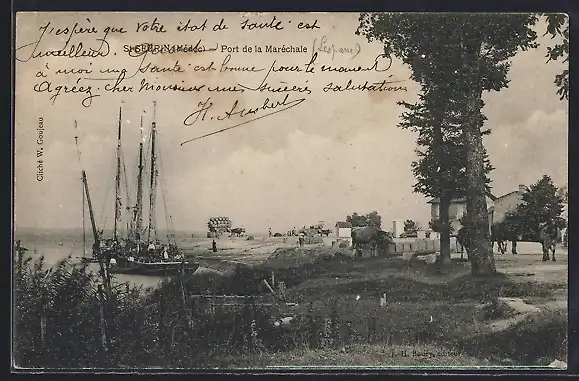 J'espère que Votre état de Santé est
meilleur.
St-SEURIN (Médoc) — Port de la Maréchale (Lesparre)
à moi ma Santé est bonne pour le moment
Agréez. cher Monsieur mes sincères salutations
H. Ambert
Cliché W. Goujeau
H. Bouéry, éditeur